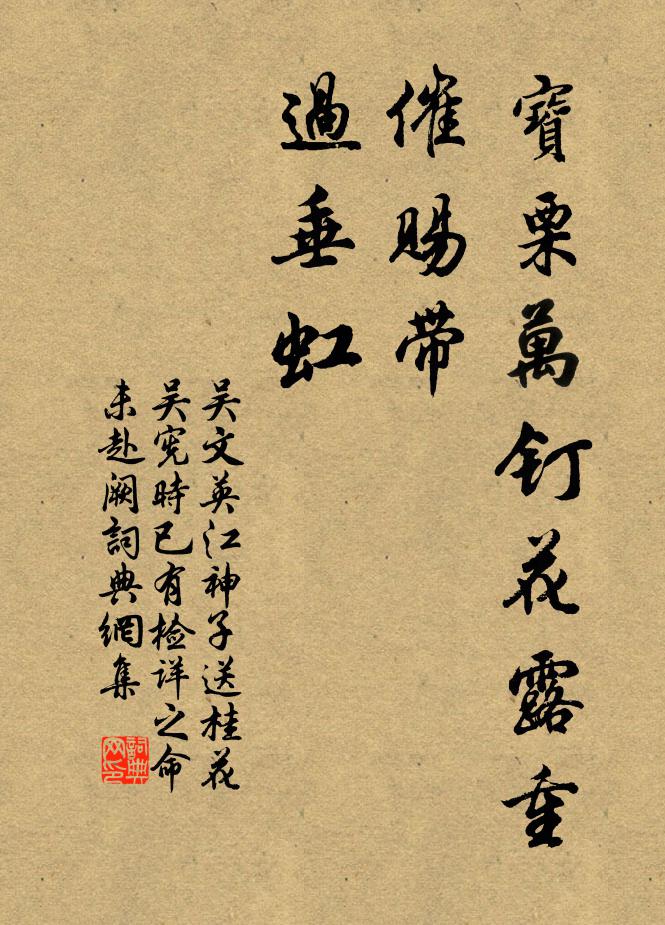 寶栗萬釘花露重
催賜帶
過垂虹
吴文英江神子送桂花
吴宪時已有检详之命
未赴阙詞典網集
詞典网印